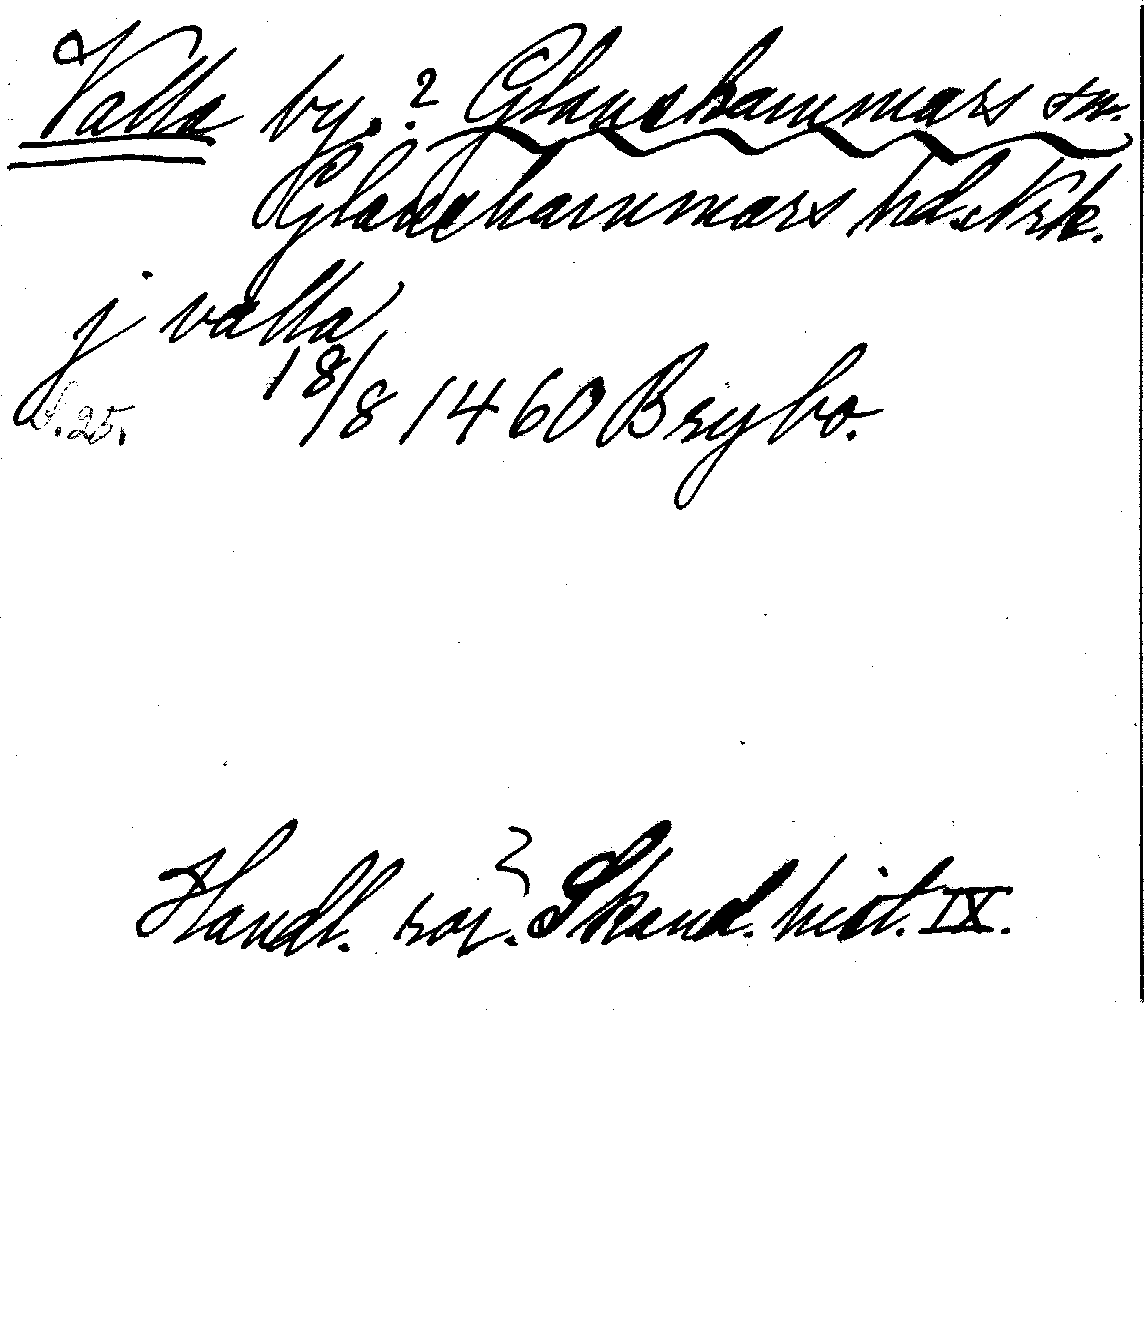 Valla by.? Glanshammars sn.
Glanshammars hd. Nrk.
j valla
S. 25. 18/8 1460 Brybo.
Handl. rör. Skand. hist. IX.